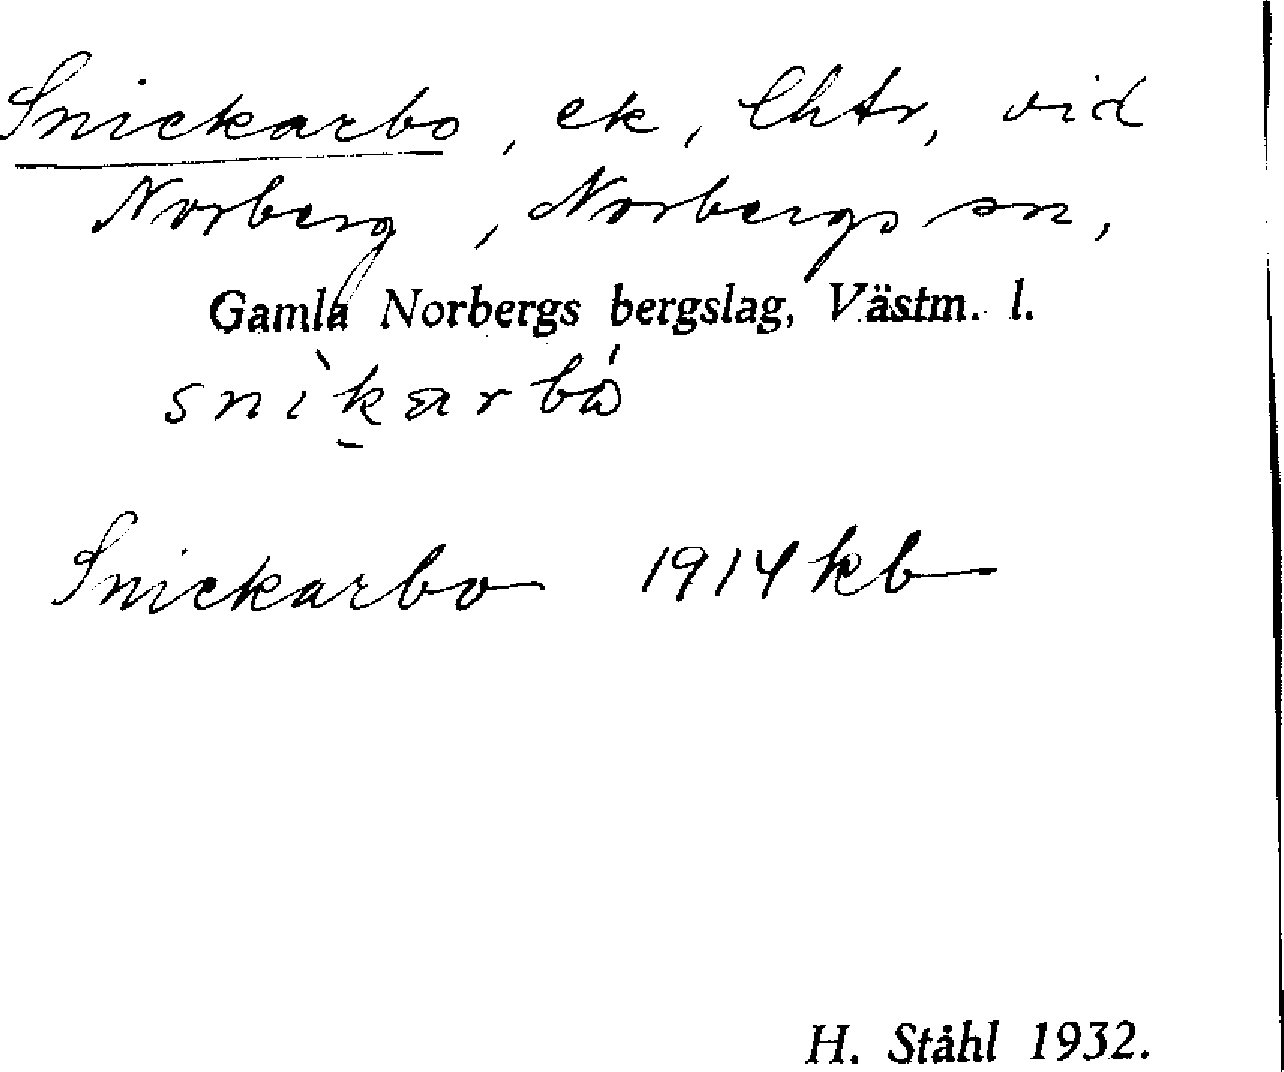 Snickarbo, ek, lhtr, vid
Norberg, Norbergs sn,
Gamla Norbergs bergslag, Västm. l.
Snickarbo 1914 kb
H. Ståhl 1932.